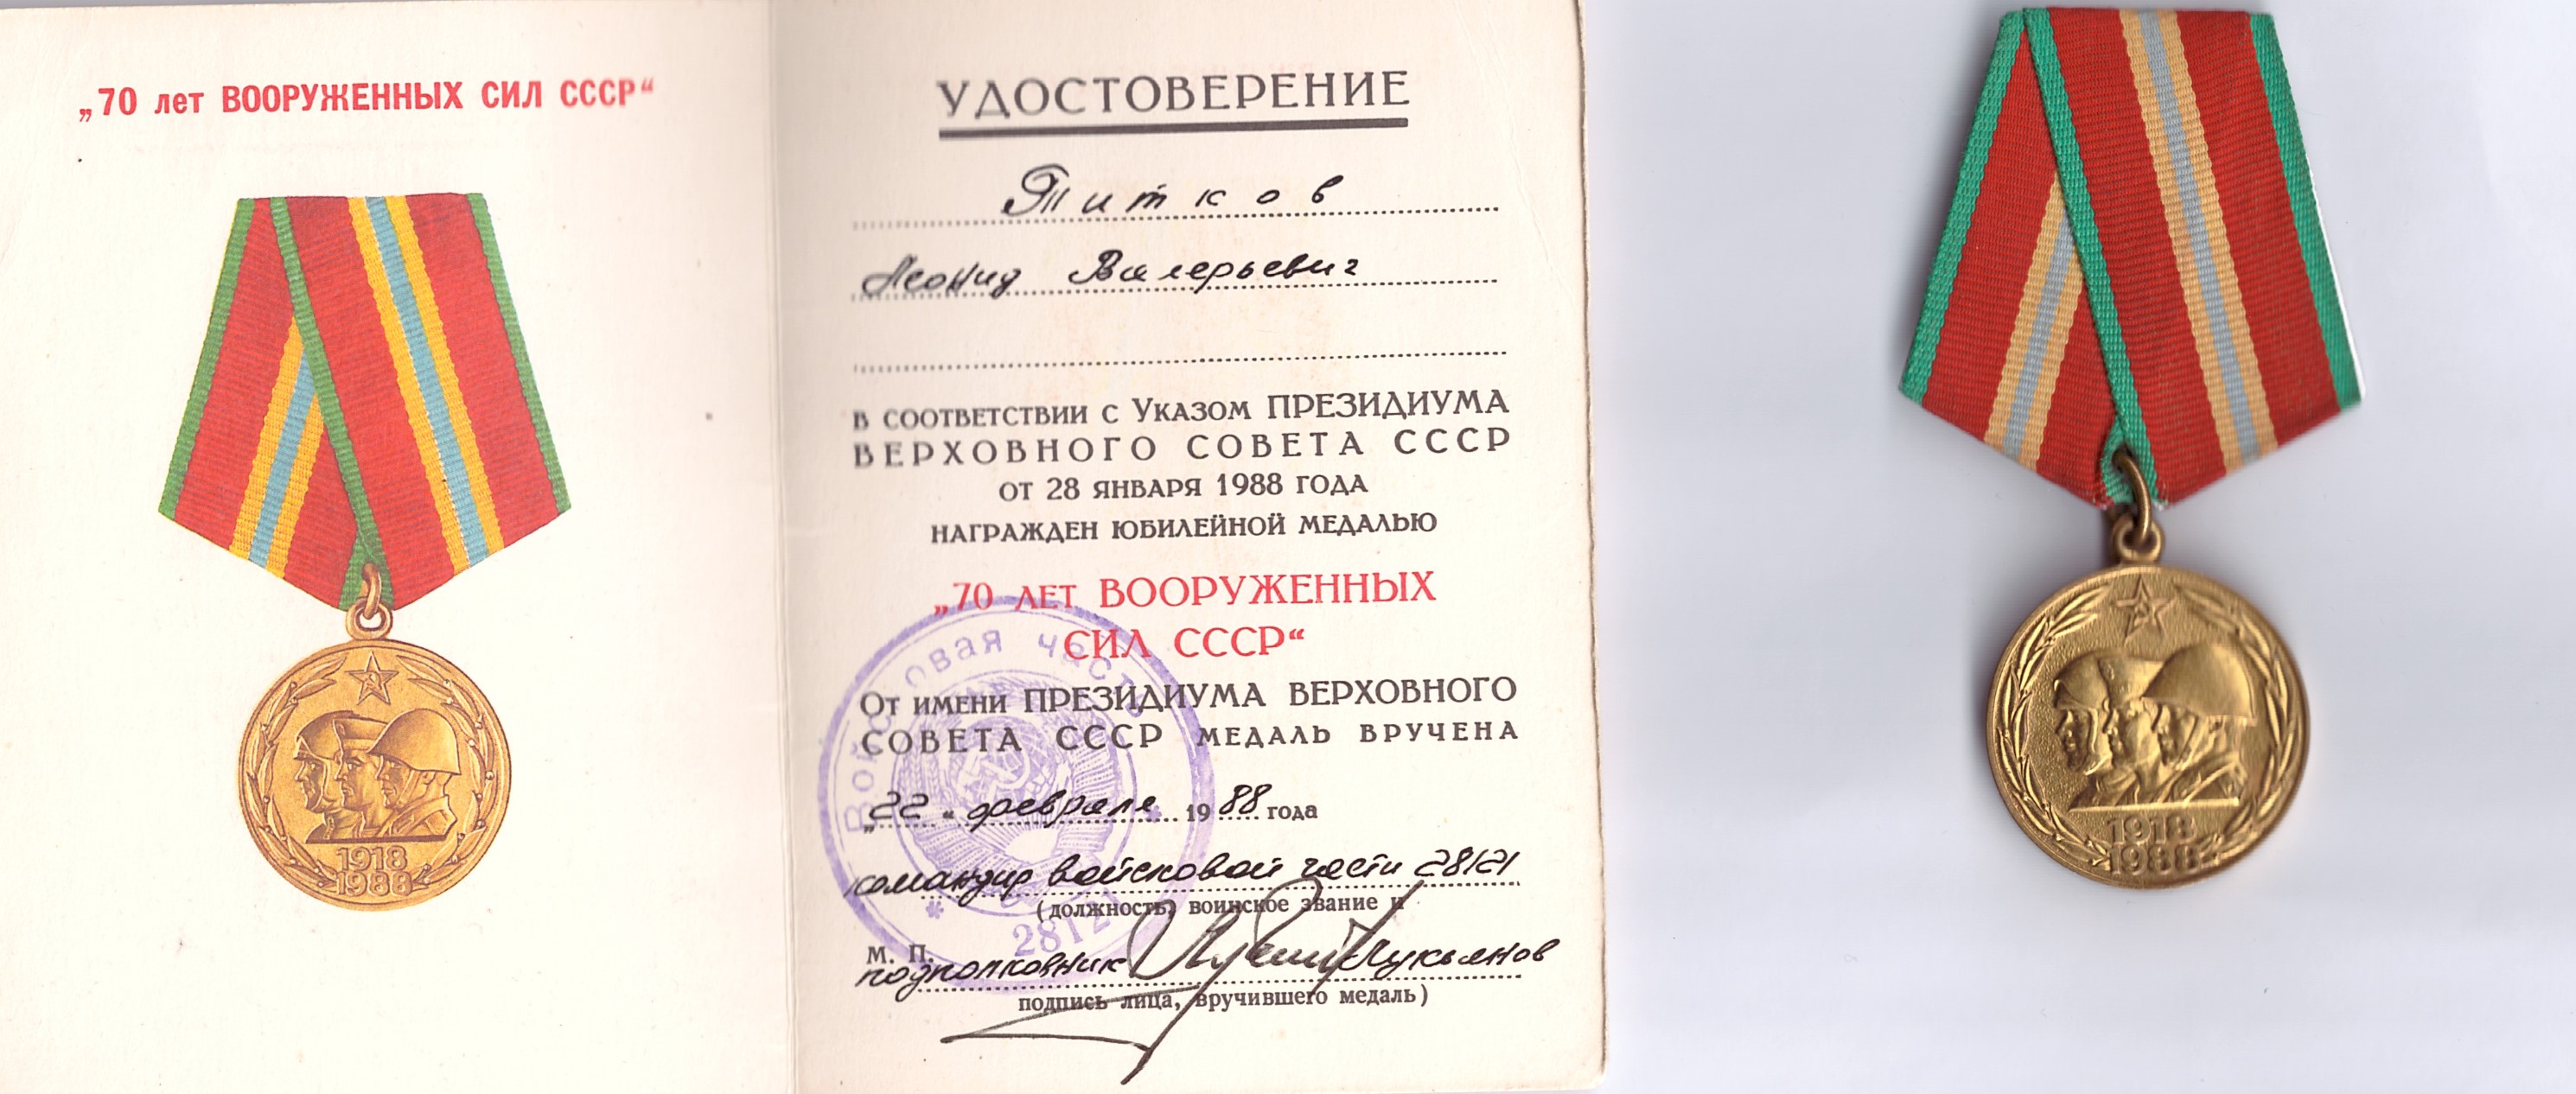 „70 лет ВООРУЖЕННЫХ СИЛ СССР“
1918
1988
УДОСТОВЕРЕНИЕ
Титков
Леонид Валерьевич
В СООТВЕТСТВИИ С УКАЗОМ ПРЕЗИДИУМА
ВЕРХОВНОГО СОВЕТА СССР
ОТ 28 ЯНВАРЯ 1988 ГОДА
НАГРАЖДЕН ЮБИЛЕЙНОЙ МЕДАЛЬЮ
„70 ЛЕТ ВООРУЖЕННЫХ
СИЛ СССР“
ОТ ИМЕНИ ПРЕЗИДИУМА ВЕРХОВНОГО
СОВЕТА СССР МЕДАЛЬ ВРУЧЕНА
„22“ февраля 1988 года
командир войсковой части 28121
(должность, воинское звание и
М. П.
подполковник Лукьянов
подпись лица, вручившего медаль)
Войсковая часть
28121
1918
1988